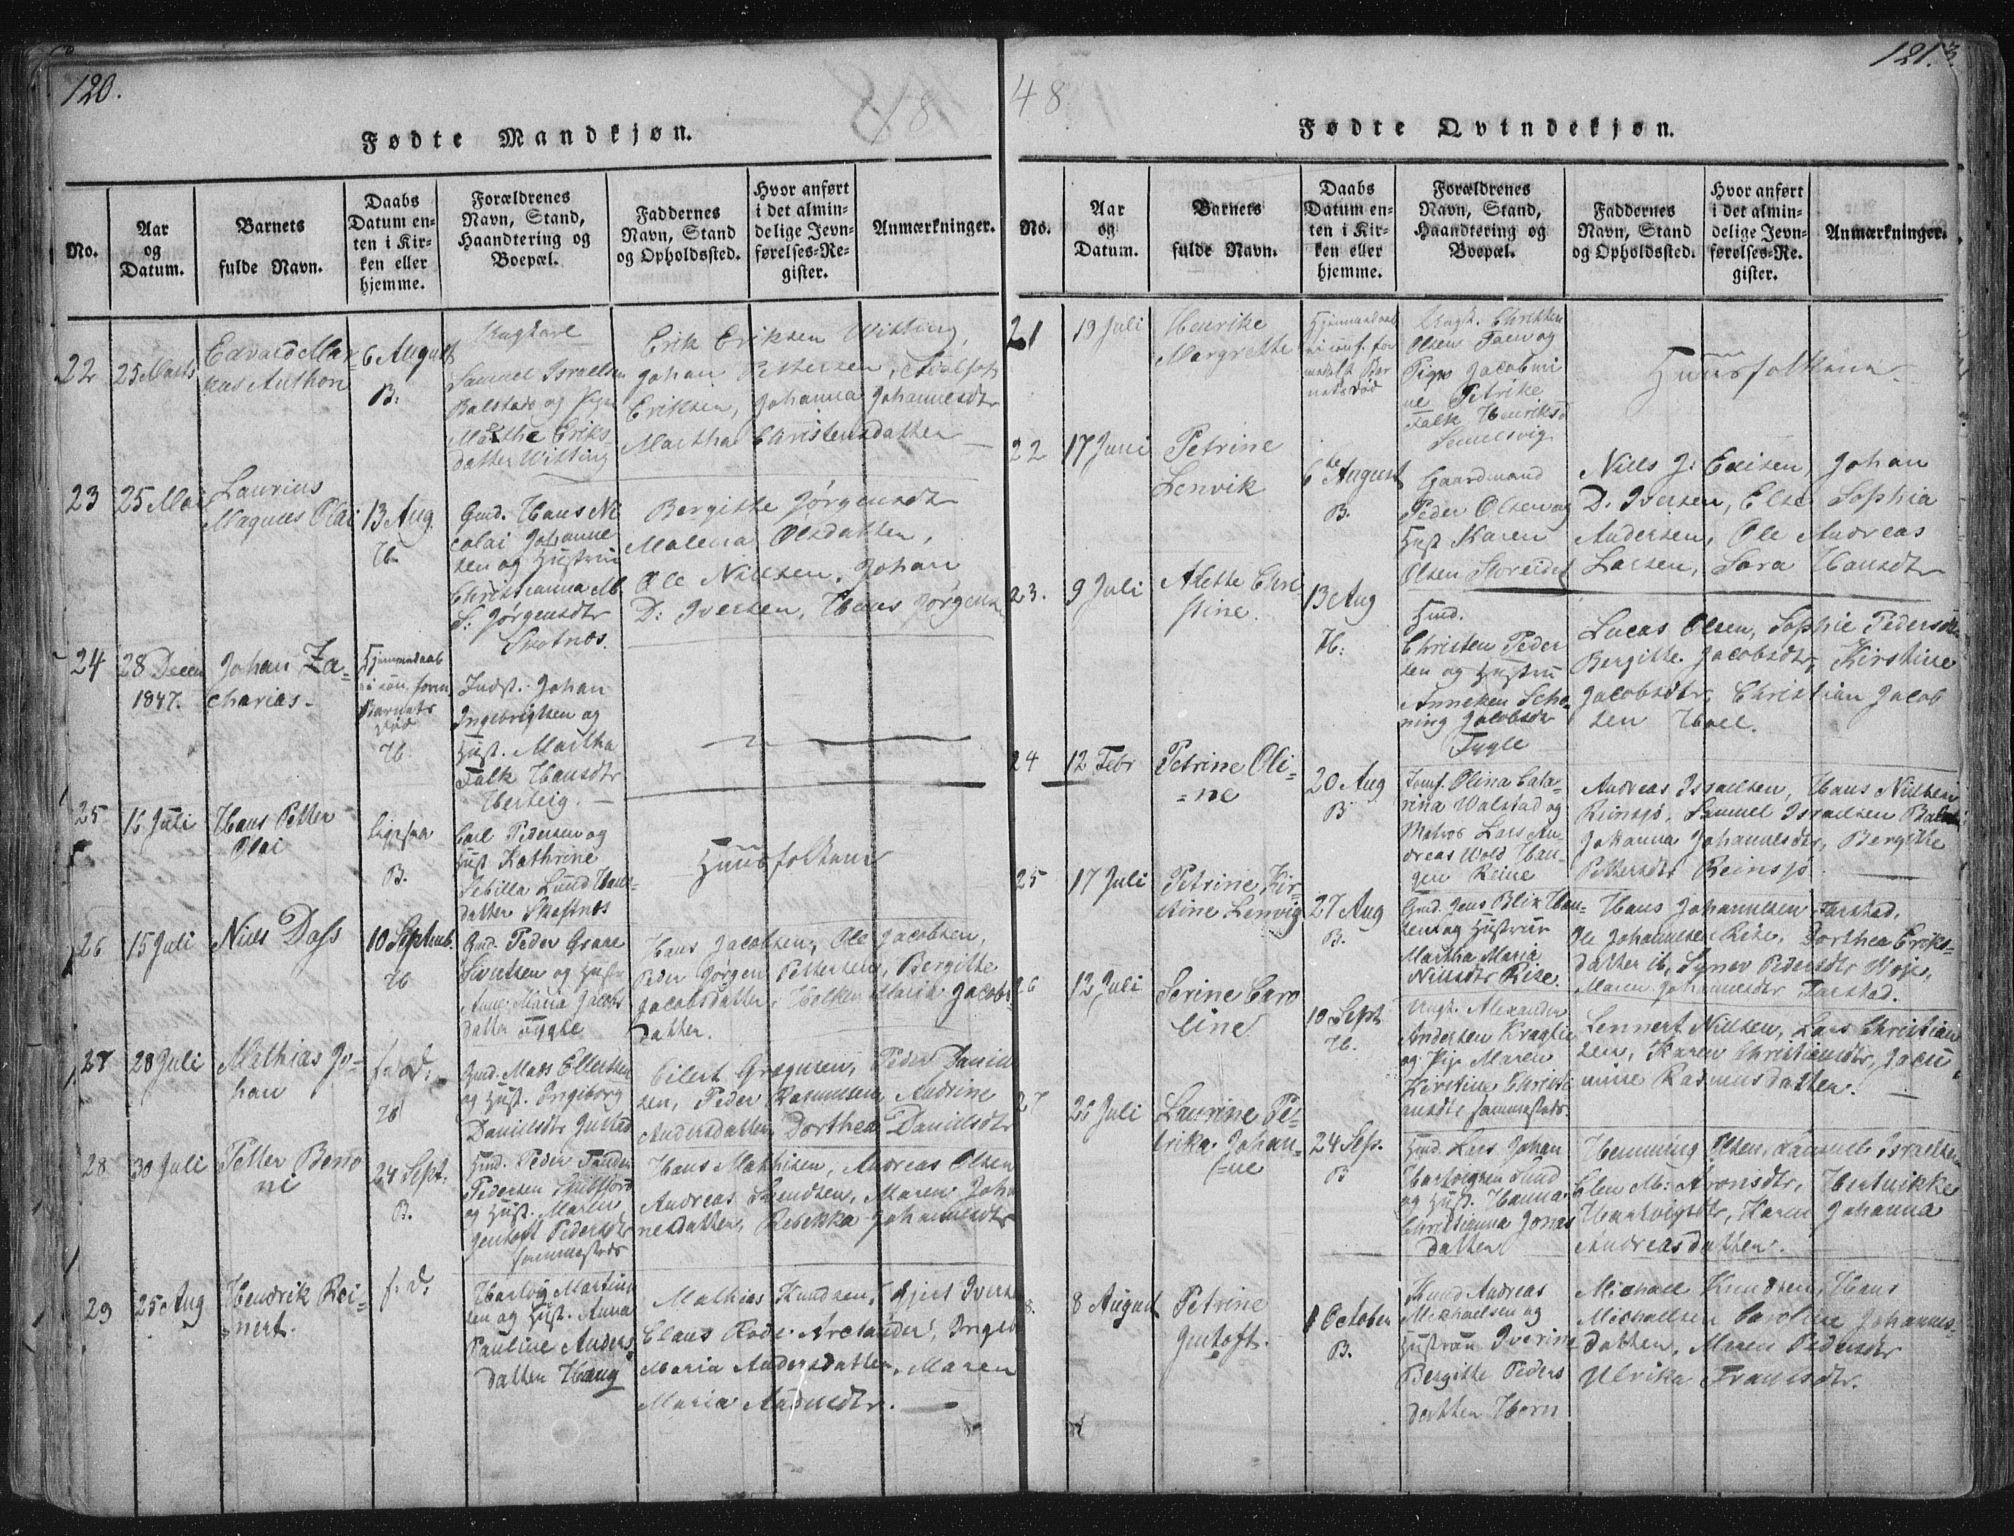 120.
18
Fødte Mandkjøn.
No.
Aar
og
Datum.
Barnets
fulde Navn.
Daabs
Datum en-
ten i Kir-
ken eller
hjemme.
Forældrenes
Navn, Stand,
Haandtering og
Boepæl.
Faddernes
Navn, Stand
og Opholdssted.
Hvor anført
i det almin-
delige Jevn-
førelses-Re-
gister.
Anmærkninger.
22
25 Marts
Edvald Mar-
kus Anthon
6 August
B.
Ungkarl
Samuel Israelsen
Balstad og Pige
Marthe Eriks
datter Witting
Erik Eriksen Witting,
Johan Pettersen, Adolf
Eriksen, Johanna Johannesdtr
Martha Christensdatter
23
25 Mai
Laurius
Magnus Olai
13 Aug.
H.
Gmd. Hans Ni
colai Johanne
sen og Hustru
Christianna M.
S. Jørgensdtr
Skotnæs.
Bergitte Jørgensdtr
Malena Olsdatter,
Ole Nilsen, Johan
D: Iversen, Hans Jørgens
24
28 Decem
1847.
Johan Za-
charias.
Hjemmedaab
Barnets
død
H.
Indst. Johan
Ingebrigtsen og
Hust. Martha
Falk Hansdtr
25
16 Juli
Hans Petter
Olai
ligesaa
B.
Carl Pedersen og
Hust Kathrine
Sebilla Lund Hans-
datter
Huusfolkene
26
15 Juli
Niels Dass
10 Septemb.
H
Gmd. Peder Grave
Sivertsen og Hust
Anne Maria Jacobs
datter Tygle
Hans Jacobsen, Ole Jacobsen,
Peder Jørgen Pettersen, Bergitte
Jacobsdatter, Holken Maria Jacobs
datter.
27
28 Juli
Mathias Jo-
han
f. d.
H
Gmd. Mads Ellertsen
og Hust. Ingeborg
Danielsdtr Justad
Eilert Gregusen, Peder Daniel
sen, Peder Rasmusen, Andrine
Andersdatter, Dorthea Danielsdtr
28
30 Juli
Petter Berto
ni
24 Sept.
B.
Gmd. Peder
Pedersen
og Hust. Maren
Jentoft Pedersdtr
sammesteds
Hans Mathisen, Andreas Olsen
Andreas Svendsen, Maren Joha
nesdatter, Rebekka Johannesdtr
29
25 Aug
Hendrik Rei-
nert.
f. d.
Hartvig Martinu
sen og Hust. Anna
Pauline Anders
datten Haug
Mathias Knudsen, Gjert Iverse
Claus Rode Arctander, Ingeb
Maria Andersdatter, Maren
Maria Andersdtr.
48
121.
Fødte Qvindekjøn.
No.
Aar
og
Datum.
Barnets
fulde Navn.
Daabs
Datum en-
ten i Kir-
ken eller
hjemme.
Forældrenes
Navn, Stand,
Haandtering og
Boepæl.
Faddernes
Navn, Stand
og Opholdssted.
Hvor anført
i det almin-
delige Jevn-
førelses-Re-
gister.
Anmærkninger.
21
19 Juli
Henrike
Margrethe
Hjemmedaab
ei conf. for
medelst Bar
nets død
Ungk. Christen
Olsen Faen og
Pige Jacobmi
ne Petrike
Falk Henriks
Huusfolkene.
22
17 Juni
Petrine
Lenvik
6te August
B.
Gaardmand
Peder Olsen og
Hust Karen
Olsen
Niels J: Edisen, Johan
D. Iversen, Else Sophia
Andersen, Ole Andreas
Larsen, Sara Hansdtr
23.
9 Juli
Alette Chri
stine.
13 Aug
H.
Gmd.
Christen Peder
sen og Hustru
Anneken Sche
ning Jacobsdtr
Tygle
Lucas Olsen, Sophie Pedersdtr
Bergitte Jacobsdtr, Kirstine
Jacobsdtr, Christian Jacob
sen Hoel.
24
12 Febr
Petrine Oli-
ne
20 Aug
B
Jomf. Olina Cata-
rina Walstad og
Matros Lars An
dreas Wold Han
gen Reine
Andreas Israelsen, Hans Nilsen
Reinsjø, Samuel Israelsen Balstad
Johanna Johannesdtr, Bergithe
Pettersdtr Reinsjø
25
17 Juli
Petrine Kir
stine Lenvig
27 Aug
B.
Gmd. Jens Blix Han-
sen og Hustru
Martha Maria
Nilsdtr Rise.
Hans Johannesen Farstad,
Ole Johannesen Rise, Dorthea Eriks-
datter ib, Synev Pedersdtr Voje,
Maren Johannesdtr Farstad.
26
12 Juli
Serine Caro
line
10 Sept
H.
Ungk. Alexander
Andersen
og Pige Maren
Kirstine Christi
ansdtr sammesteds
Lennert Nilsen, Lars Christian
sen, Karen Christiansdtr, Jacu
mine Rasmusdatter.
27
26 Juli
Laurine Pe-
trika Johan-
ne
24 Sep.
B
Gmd. Lars Johan
Hartvigsen Sund
og Hust. Hanna
Christianna Jonas
datter
Hemming Olsen, Samuel Israelsen
Elen M: Aronsdtr, Hentrikke
Hartvigsdtr, Karen Johanna
Andreasdatter.
28.
8 August
Petrine
Jentoft.
1 October
B.
Andreas
Michaelsen og
Hustru Iverine
Bergitte Peders
datter Horn
Michael Knudsen, Hans
Michaelsen Caroline Johannes-
datter, Maren Pedersdtr
Ulrikka Fransdtr.